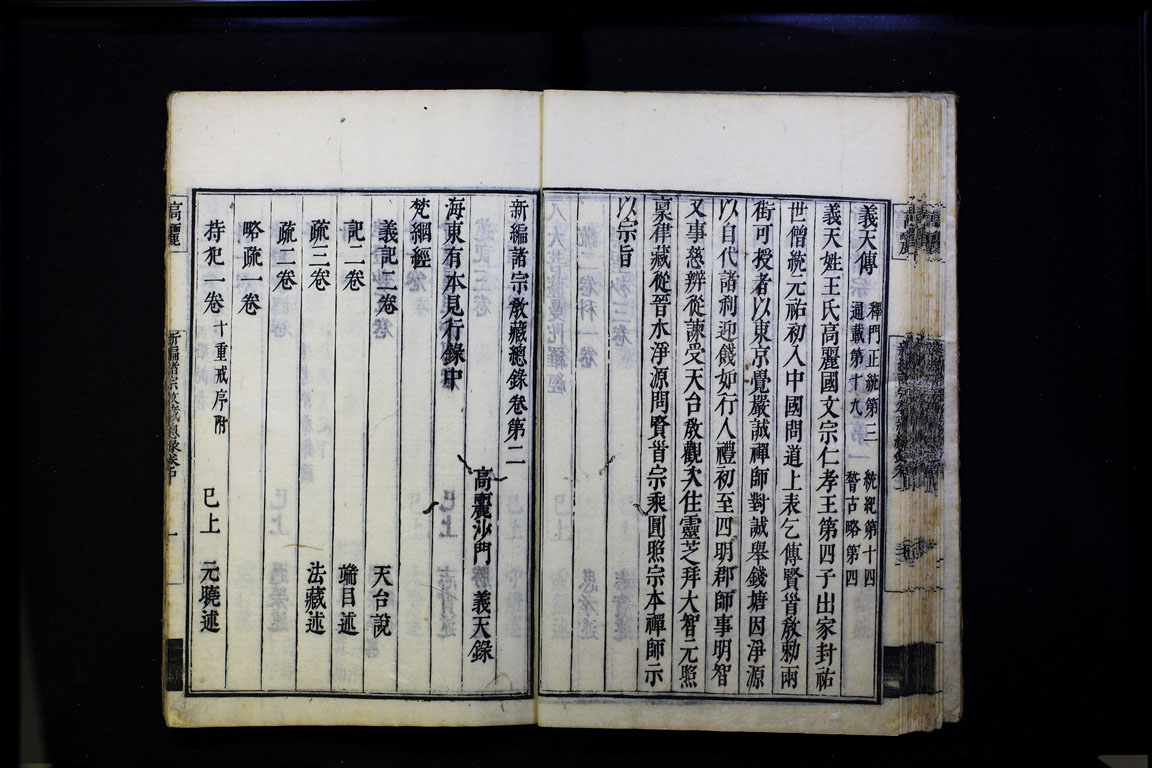 義天傳 釋門正統第三 統紀第十四
通載第十九 稽古略第四
義天姓王氏高麗國文宗仁孝王第四子出家封祐
世僧統元祐初入中國問道上表乞傳賢首敎勑兩
街可授者以東京覺嚴誠禪師對誠舉錢塘因淨源
以自代諸刹迎餞如行人禮初至四明郡師事明智
又事慈辨從諫受天台敎觀大住靈芝拜大智元照
稟律藏從晉水淨源問賢首宗乘圓照宗本禪師示
以宗旨
新編諸宗敎藏總錄卷第二
高麗沙門 義天錄
海東有本見行錄中
梵網經
義記二卷 天台說
記二卷 端目述
疏三卷 法藏述
疏二卷
略疏一卷
持犯一卷 十重戒序附 已上 元曉述
高麗
新編諸宗敎藏總錄卷中 一